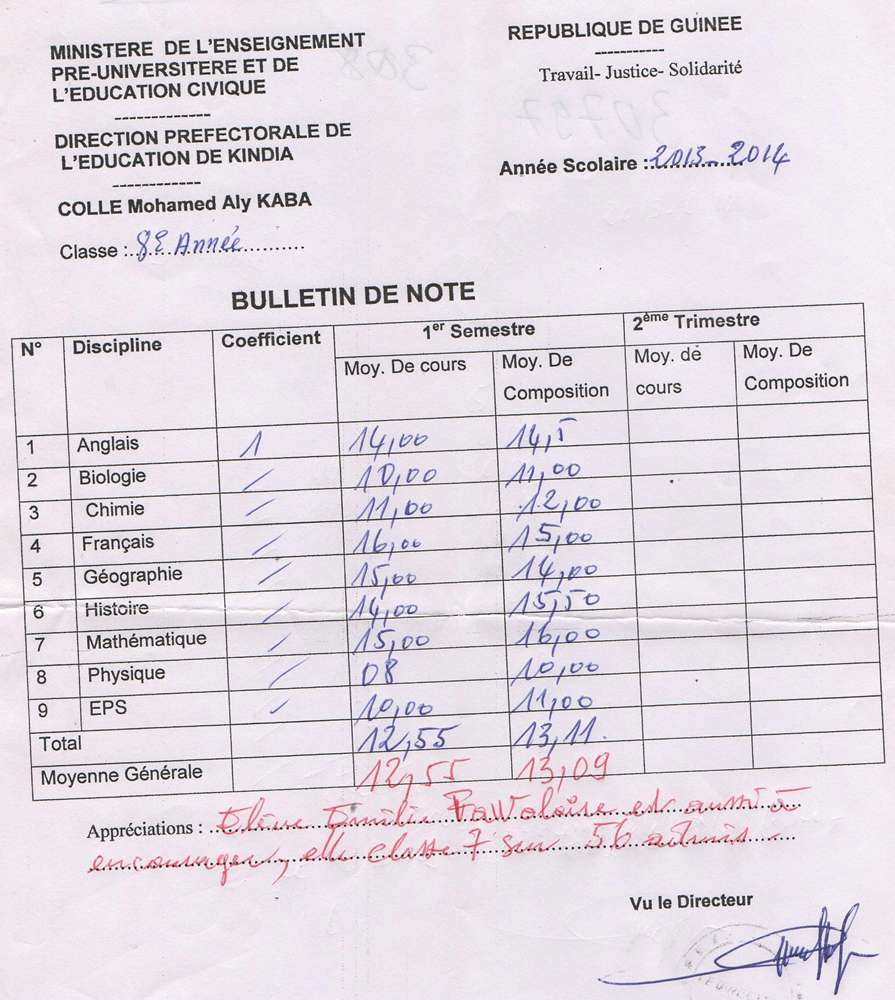 MINISTERE DE L'ENSEIGNEMENT
PRE-UNIVERSITERE ET DE
L'EDUCATION CIVIQUE
-------------
DIRECTION PREFECTORALE DE
L'EDUCATION DE KINDIA
------------
COLLE Mohamed Aly KABA
Classe : 8E Année
REPUBLIQUE DE GUINEE
-----------
Travail- Justice- Solidarité
Année Scolaire : 2013-2014
BULLETIN DE NOTE
N° Discipline Coefficient 1er Semestre 2ème Trimestre
Moy. De cours Moy. De Composition Moy. de cours Moy. De Composition
1 Anglais 1 14,00 14,5
2 Biologie / 10,00 11,00
3 Chimie / 11,00 12,00
4 Français / 16,00 15,00
5 Géographie / 15,00 14,00
6 Histoire / 14,00 15,50
7 Mathématique / 15,00 16,00
8 Physique / 08 10,00
9 EPS / 10,00 11,00
Total 12,55 13,11.
Moyenne Générale 12,55 13,09
Appréciations : Elève Emilie est aussi à
encourager, elle classe 7 sur 56 admis
Vu le Directeur